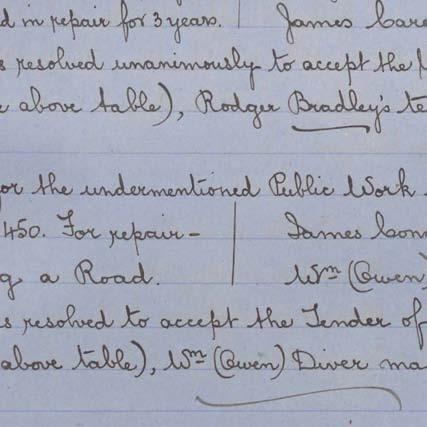 d in repair for 3 years. James Care
s resolved unanimously to accept the
e above table), Rodger Bradley's te
or the undermentioned Public Work
450. For repair- James Conn
g a Road. Wm (Owen)
s resolved to accept the Tender of
above table), Wm (Owen) Diver ma